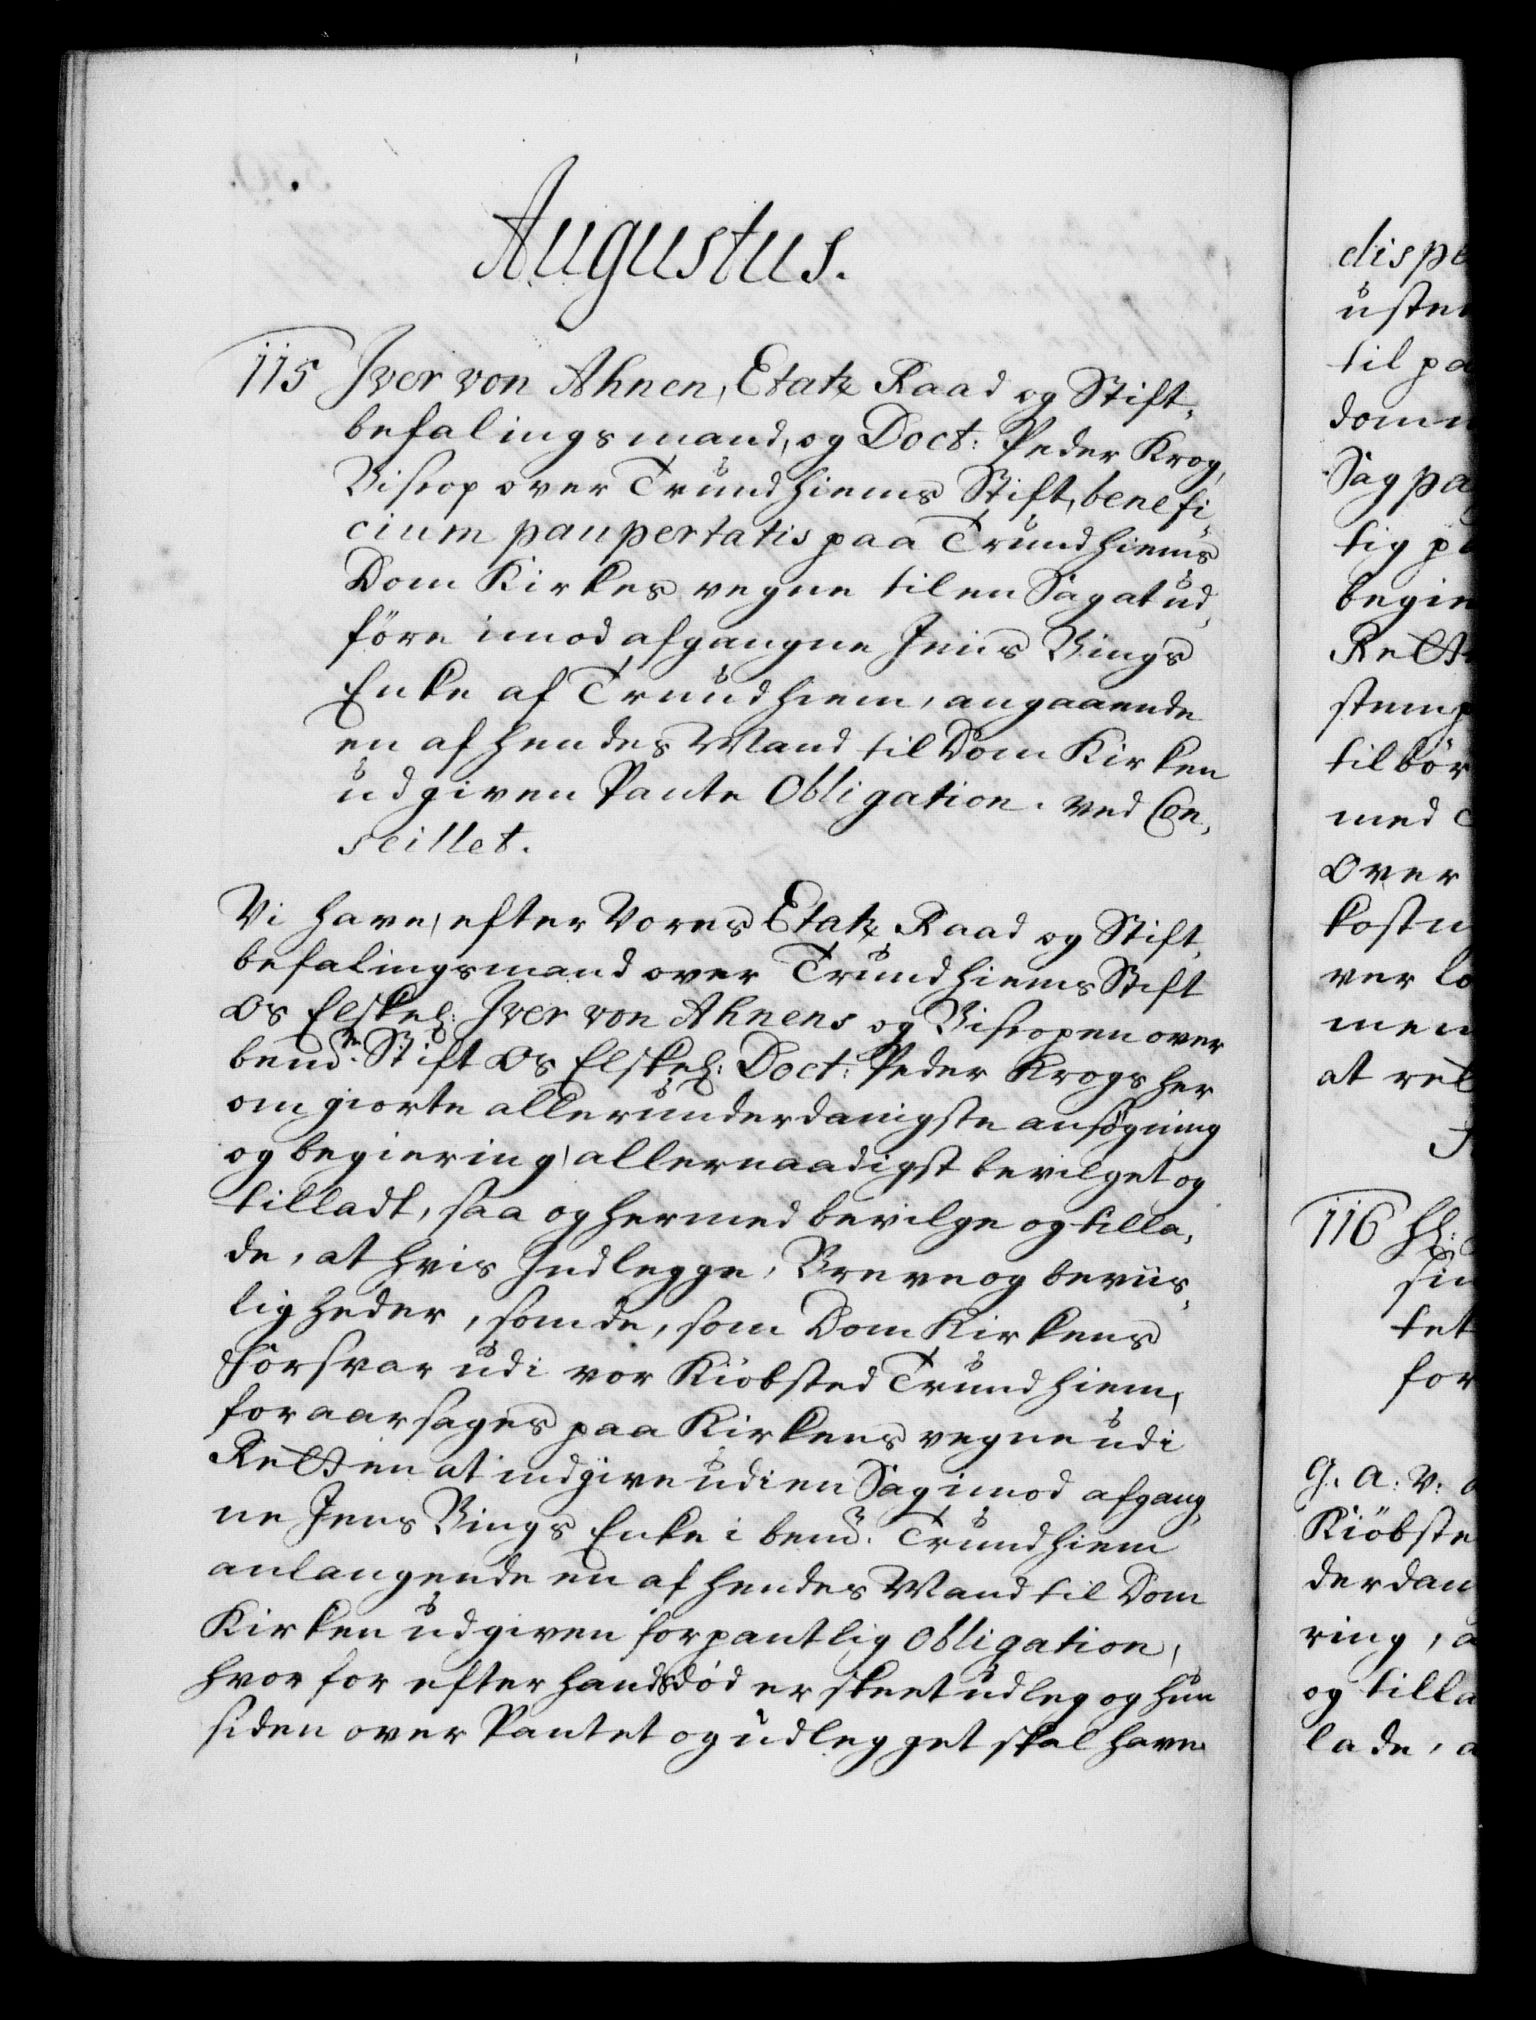 Augustus.
115 Iver von Ahnen, Etatz Raad og Stift,
befalingsmand, og Doct: Peder Krog,
Biscop over Trundhiems Stift, benefi,
cium paupertatis paa Trundhiems
Dom Kirkes vegne til en Sag at ud,
före imod afgangne Jens Bings
Enke af Trundhiem, angaaende
en af hendes Mand til Dom Kirken
udgiven Pante Obligation. ved Con,
seillet.
Vi have, efter Vores Etatz Raad og Stift,
befalingsmand over Trundhiems Stift
Os Elskel: Iver von Ahnens og Biscopen over
bemte. Stift Os Elskel: Doct: Peder Krogs her
om giorte allerunderdanigste ansögning
og begiering, allernaadigst bevilget og
tilladt, saa og hermed bevilge og tilla,
de, at hvis Indlegge, Breve og beviis,
ligheder, som de, som Dom Kirkens
Forsvar udi vor Kiöbsted Trundhiem,
foraarsages paa Kirkens vegne udi
Retten at indgive udi en Sag imod afgang,
ne Jens Bings Enke i bemt. Trundhiem
anlangende en af hendes Mand til Dom
Kirken udgiven forpantlig Obligation,
hvor for efter hands död er skeet udleg og hun
siden over Pantet og udlegget skal have
dispe
uster
til pa
dom
Sag pa
tig p
begie
Rette
stemp
tilbör
med
Over
kostn
ver lo
men
at rel
116 Hl:
sin
tet
for
G. A: V:
Kiöbste
derdan
ring, a
og tilla
lade, a